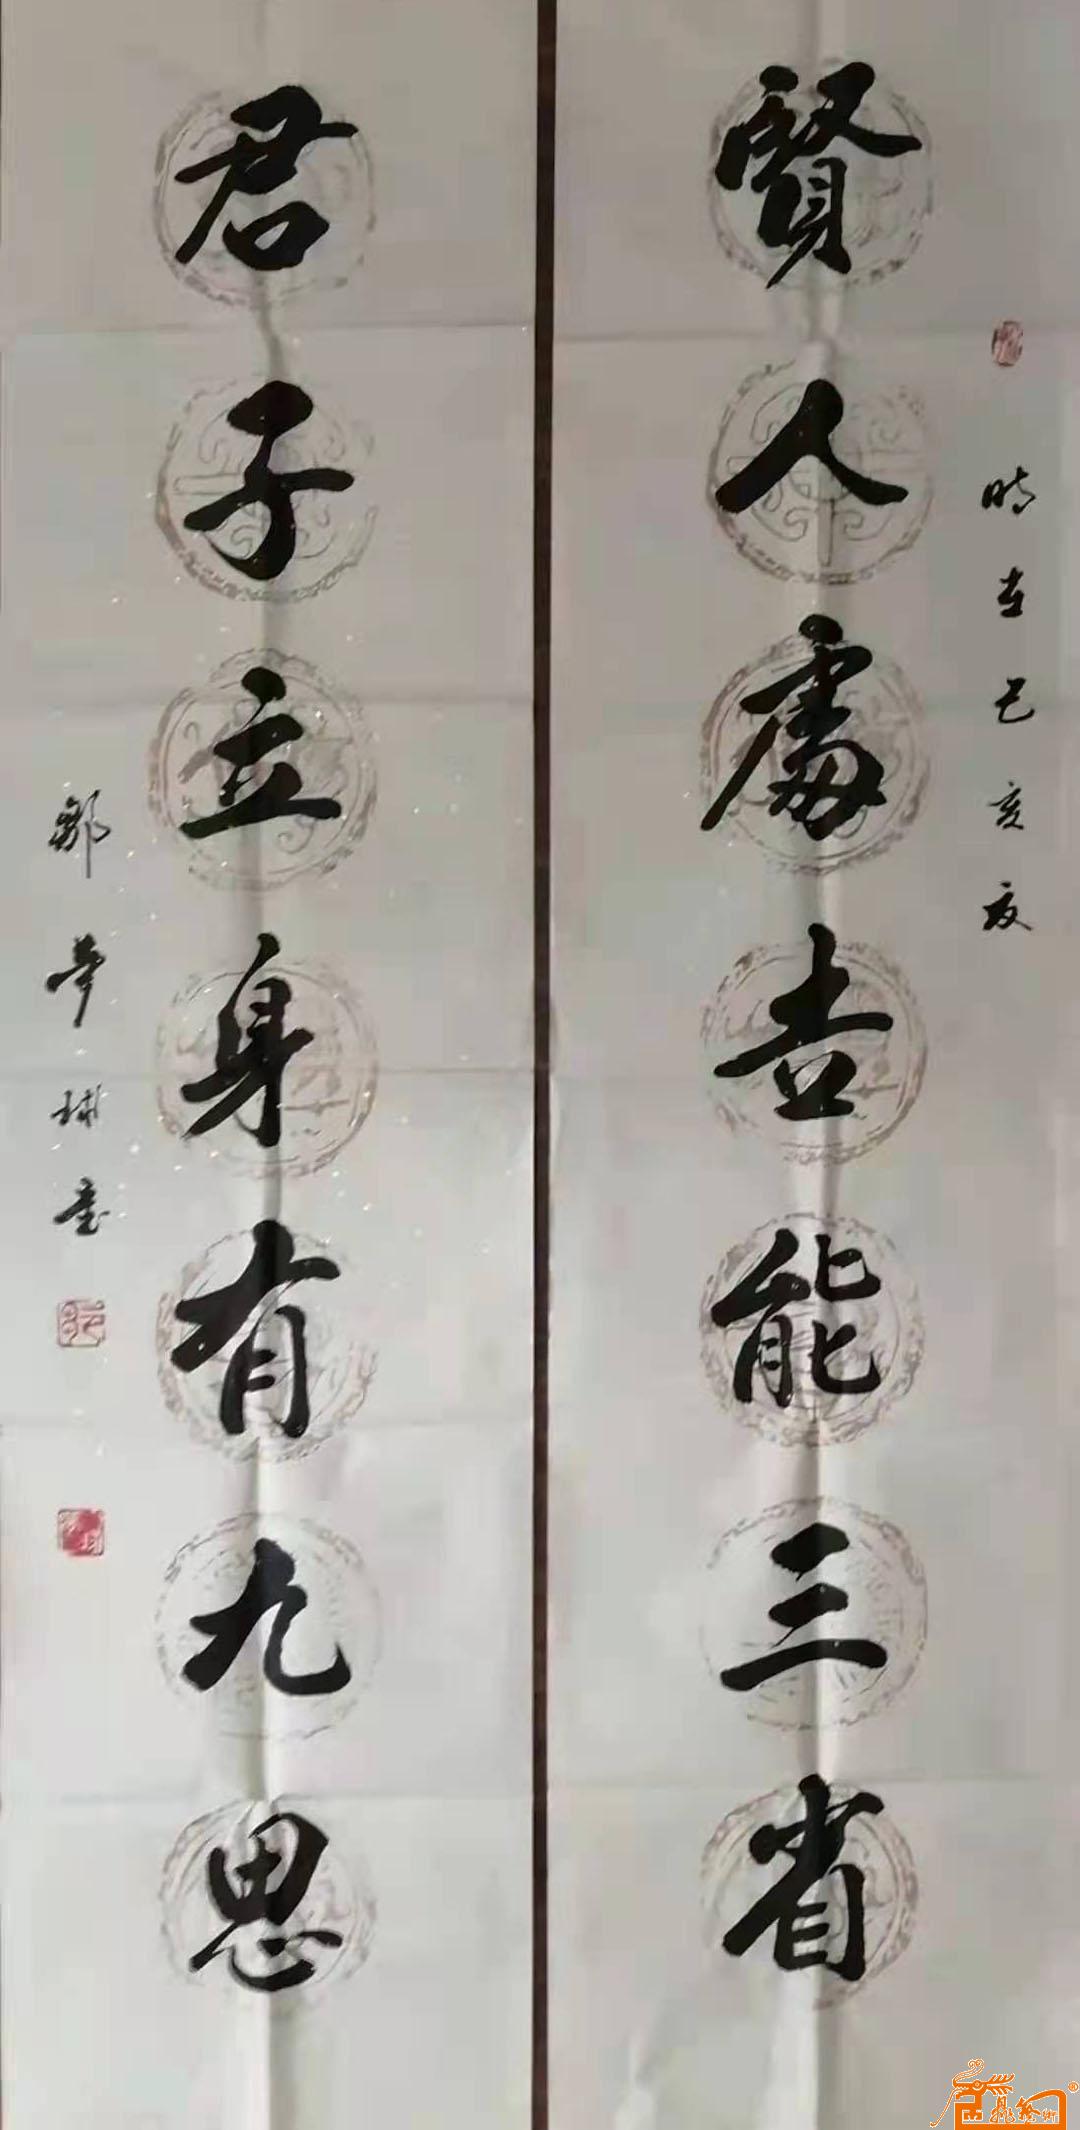 賢人處吉能三省
時在己亥夏
君子立身有九思
鄒夢球書